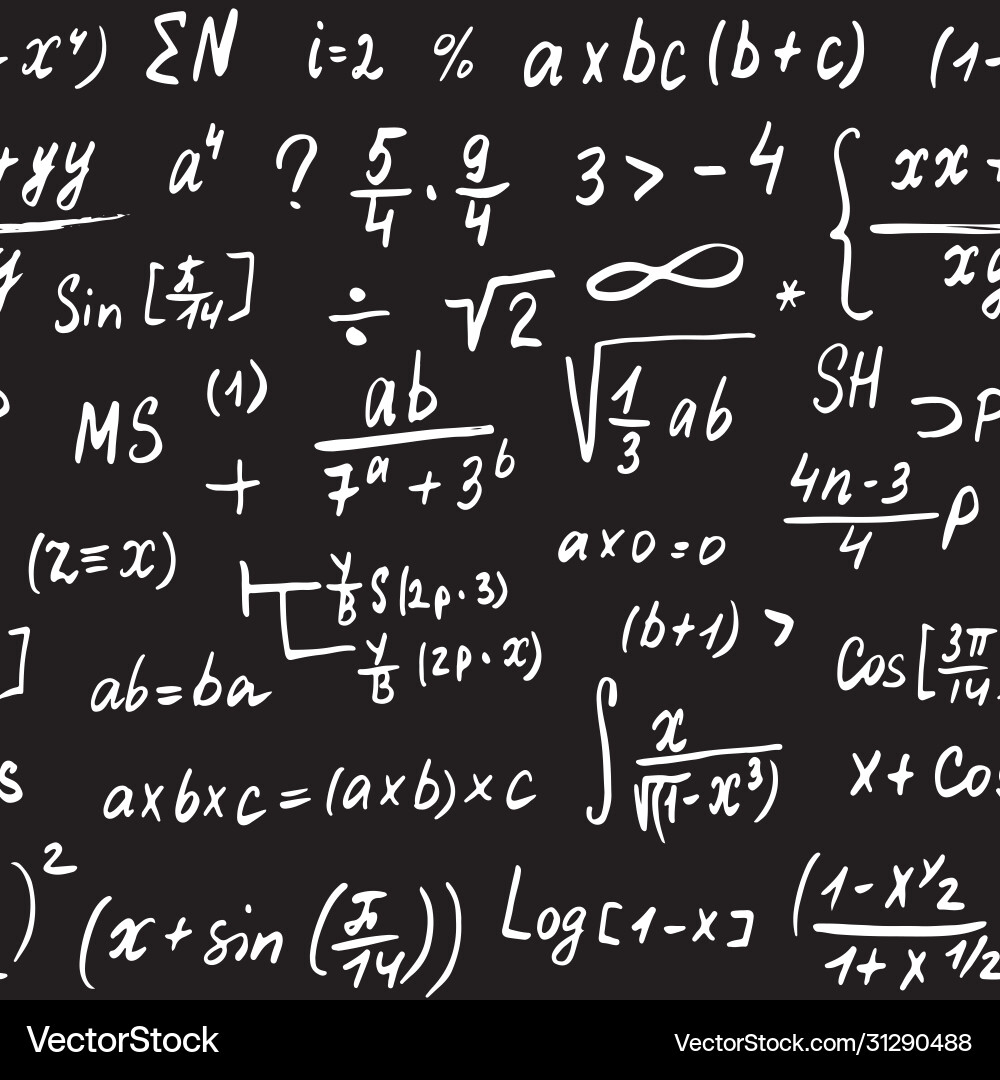 - x⁴) ΣN i=2 % axbc(b+c) (1-
+yy a⁴ ? 5/4 · 9/4 3 > -4 { xx +
y Sin [π/14] ÷ √2 ∞ * xy
MS (1) ab/(7ᵃ + 3ᵇ) √(1/3 ab) SH ⊃P
+ (4n-3)/4 P
(z≡x) Y/B S(2p·3) a×0=0
Y/B (2p·x) (b+1) >
] ab=ba Cos[3π/14
s a×b×c=(a×b)×c ∫ x/√(1-x³) x+Cos
)² (x+sin(π/14)) Log[1-x] (1-x^y2
1+x^1/2
VectorStock VectorStock.com/31290488